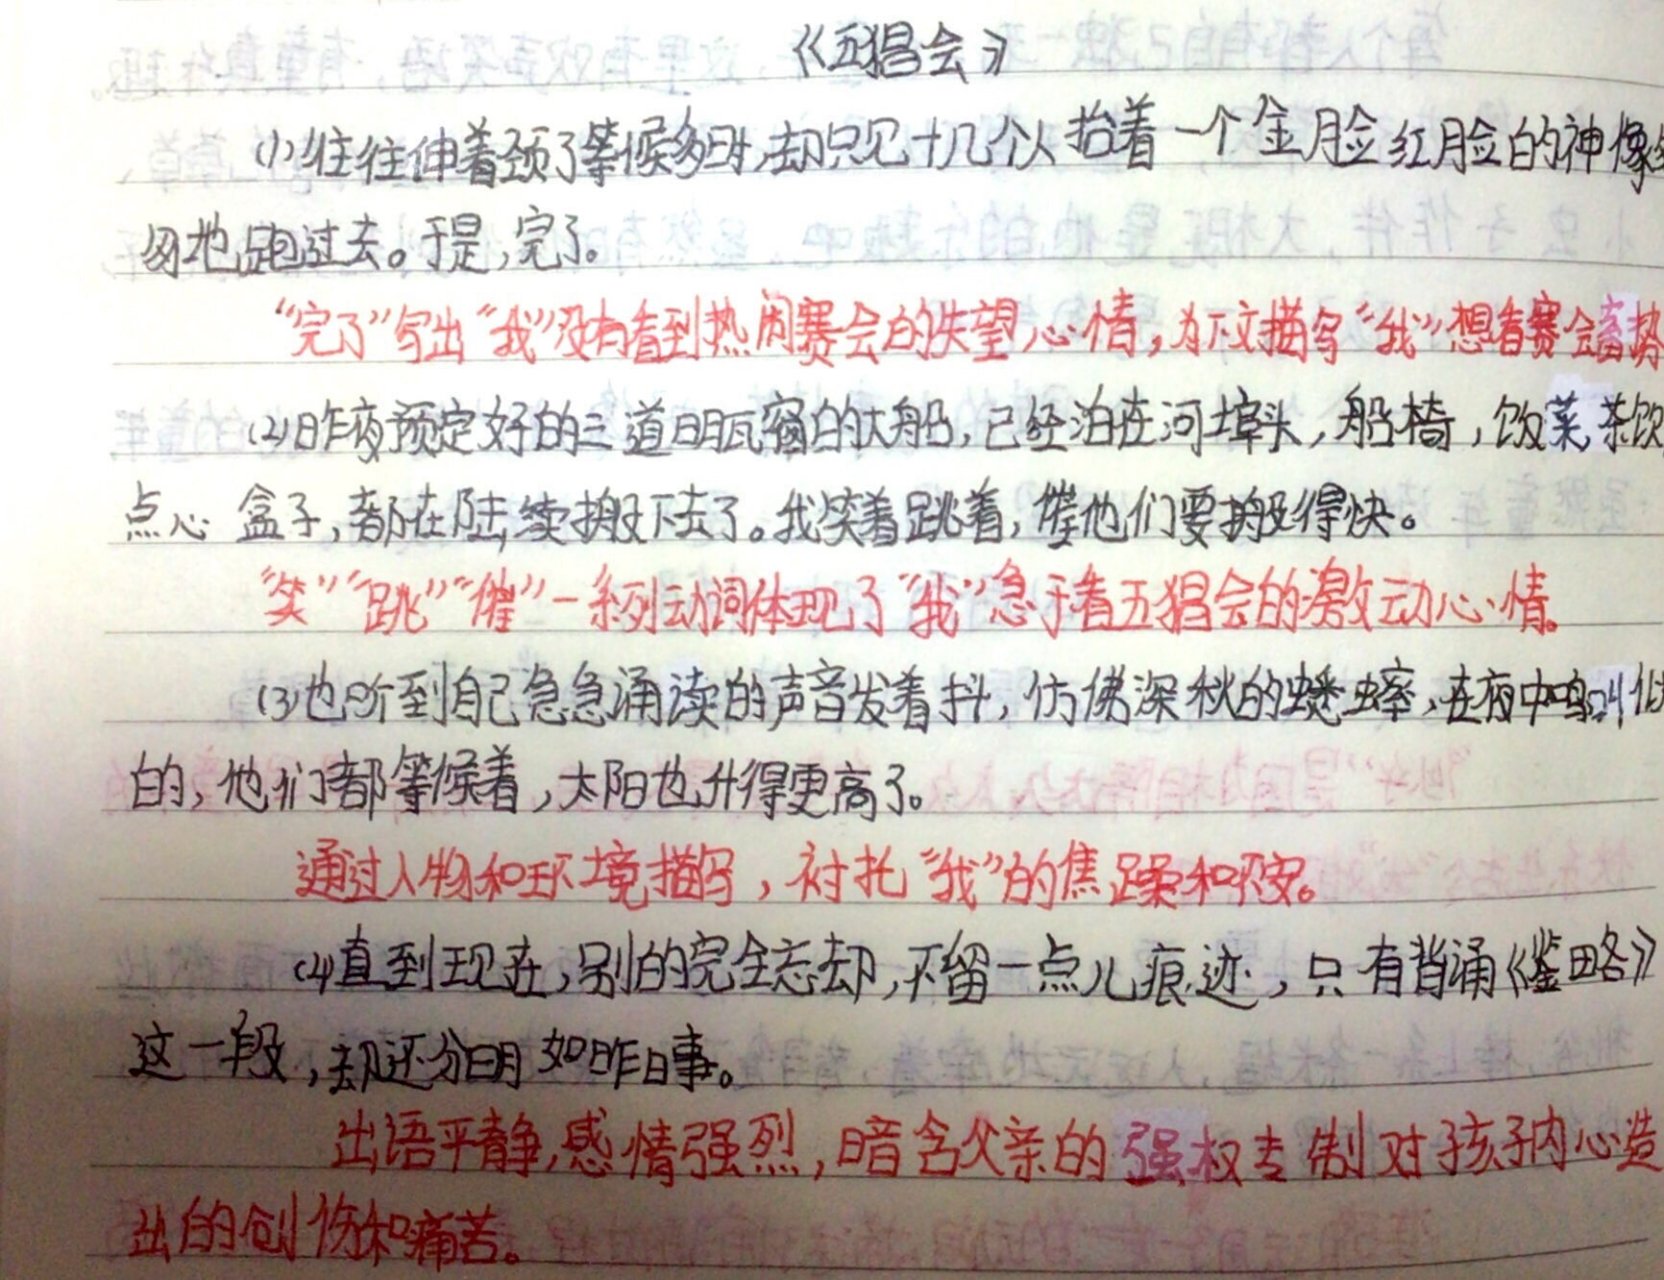 《五猖会》
(1)往往伸着颈子等候多时,却只见十几个人抬着一个金脸红脸的神像
匆地跑过去。于是,完了。
“完了”写出“我”没有看到热闹赛会的失望心情,为下文描写“我”想看赛会蓄势
(2)昨夜预定好的三道明瓦窗的大船,已经泊在河埠头,船椅,饭菜,茶饮
点心盒子,都在陆续搬下去了。我笑着跳着,催他们要搬得快。
“笑”“跳”“催”一系列动词体现了“我”急于看五猖会的激动心情。
(3)也听到自己急急诵读的声音发着抖,仿佛深秋的蟋蟀,在夜中鸣叫似
的,他们都等候着,太阳也升得更高了。
通过人物和环境描写,衬托“我”的焦躁和不安。
(4)直到现在,别的完全忘却,不留一点儿痕迹,只有背诵《鉴略》
这一段,却还分明如昨日事。
出语平静,感情强烈,暗含父亲的强权专制对孩子内心造
出的创伤和痛苦。